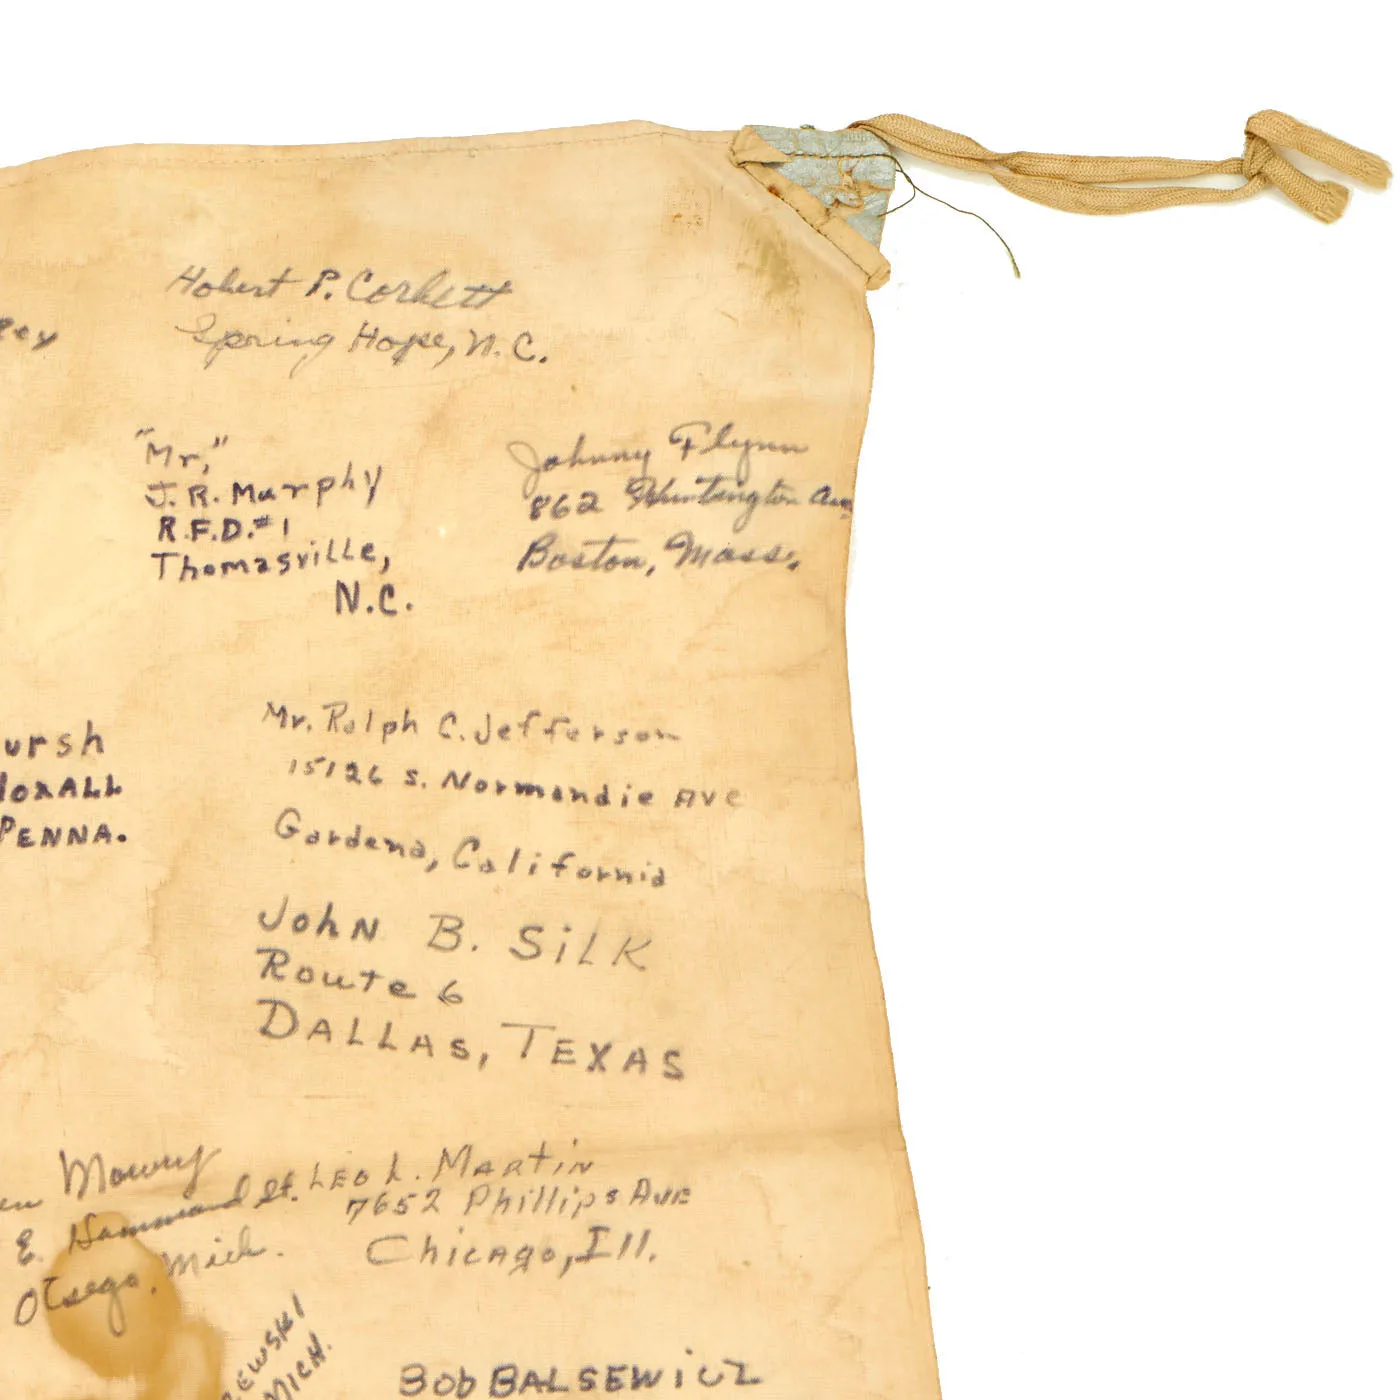 Hobert P. Corbett
Spring Hope, N.C.
"Mr,"
J. R. Murphy
R.F.D. #1
Thomasville,
N.C.
Johnny Flynn
862 Huntington Ave.
Boston, Mass.
ursh
PENNA.
Mr. Ralph C. Jefferson
15126 S. Normandie AVE
Gardena, California
John B. SiLK
Route 6
DALLAS, TEXAS
Mowry
E. Hammond St.
Otsego, Mich.
LEO L. MARTIN
7652 Phillips AVE
Chicago, Ill.
EWSKI
MICH.
BOb BALSEWicZ